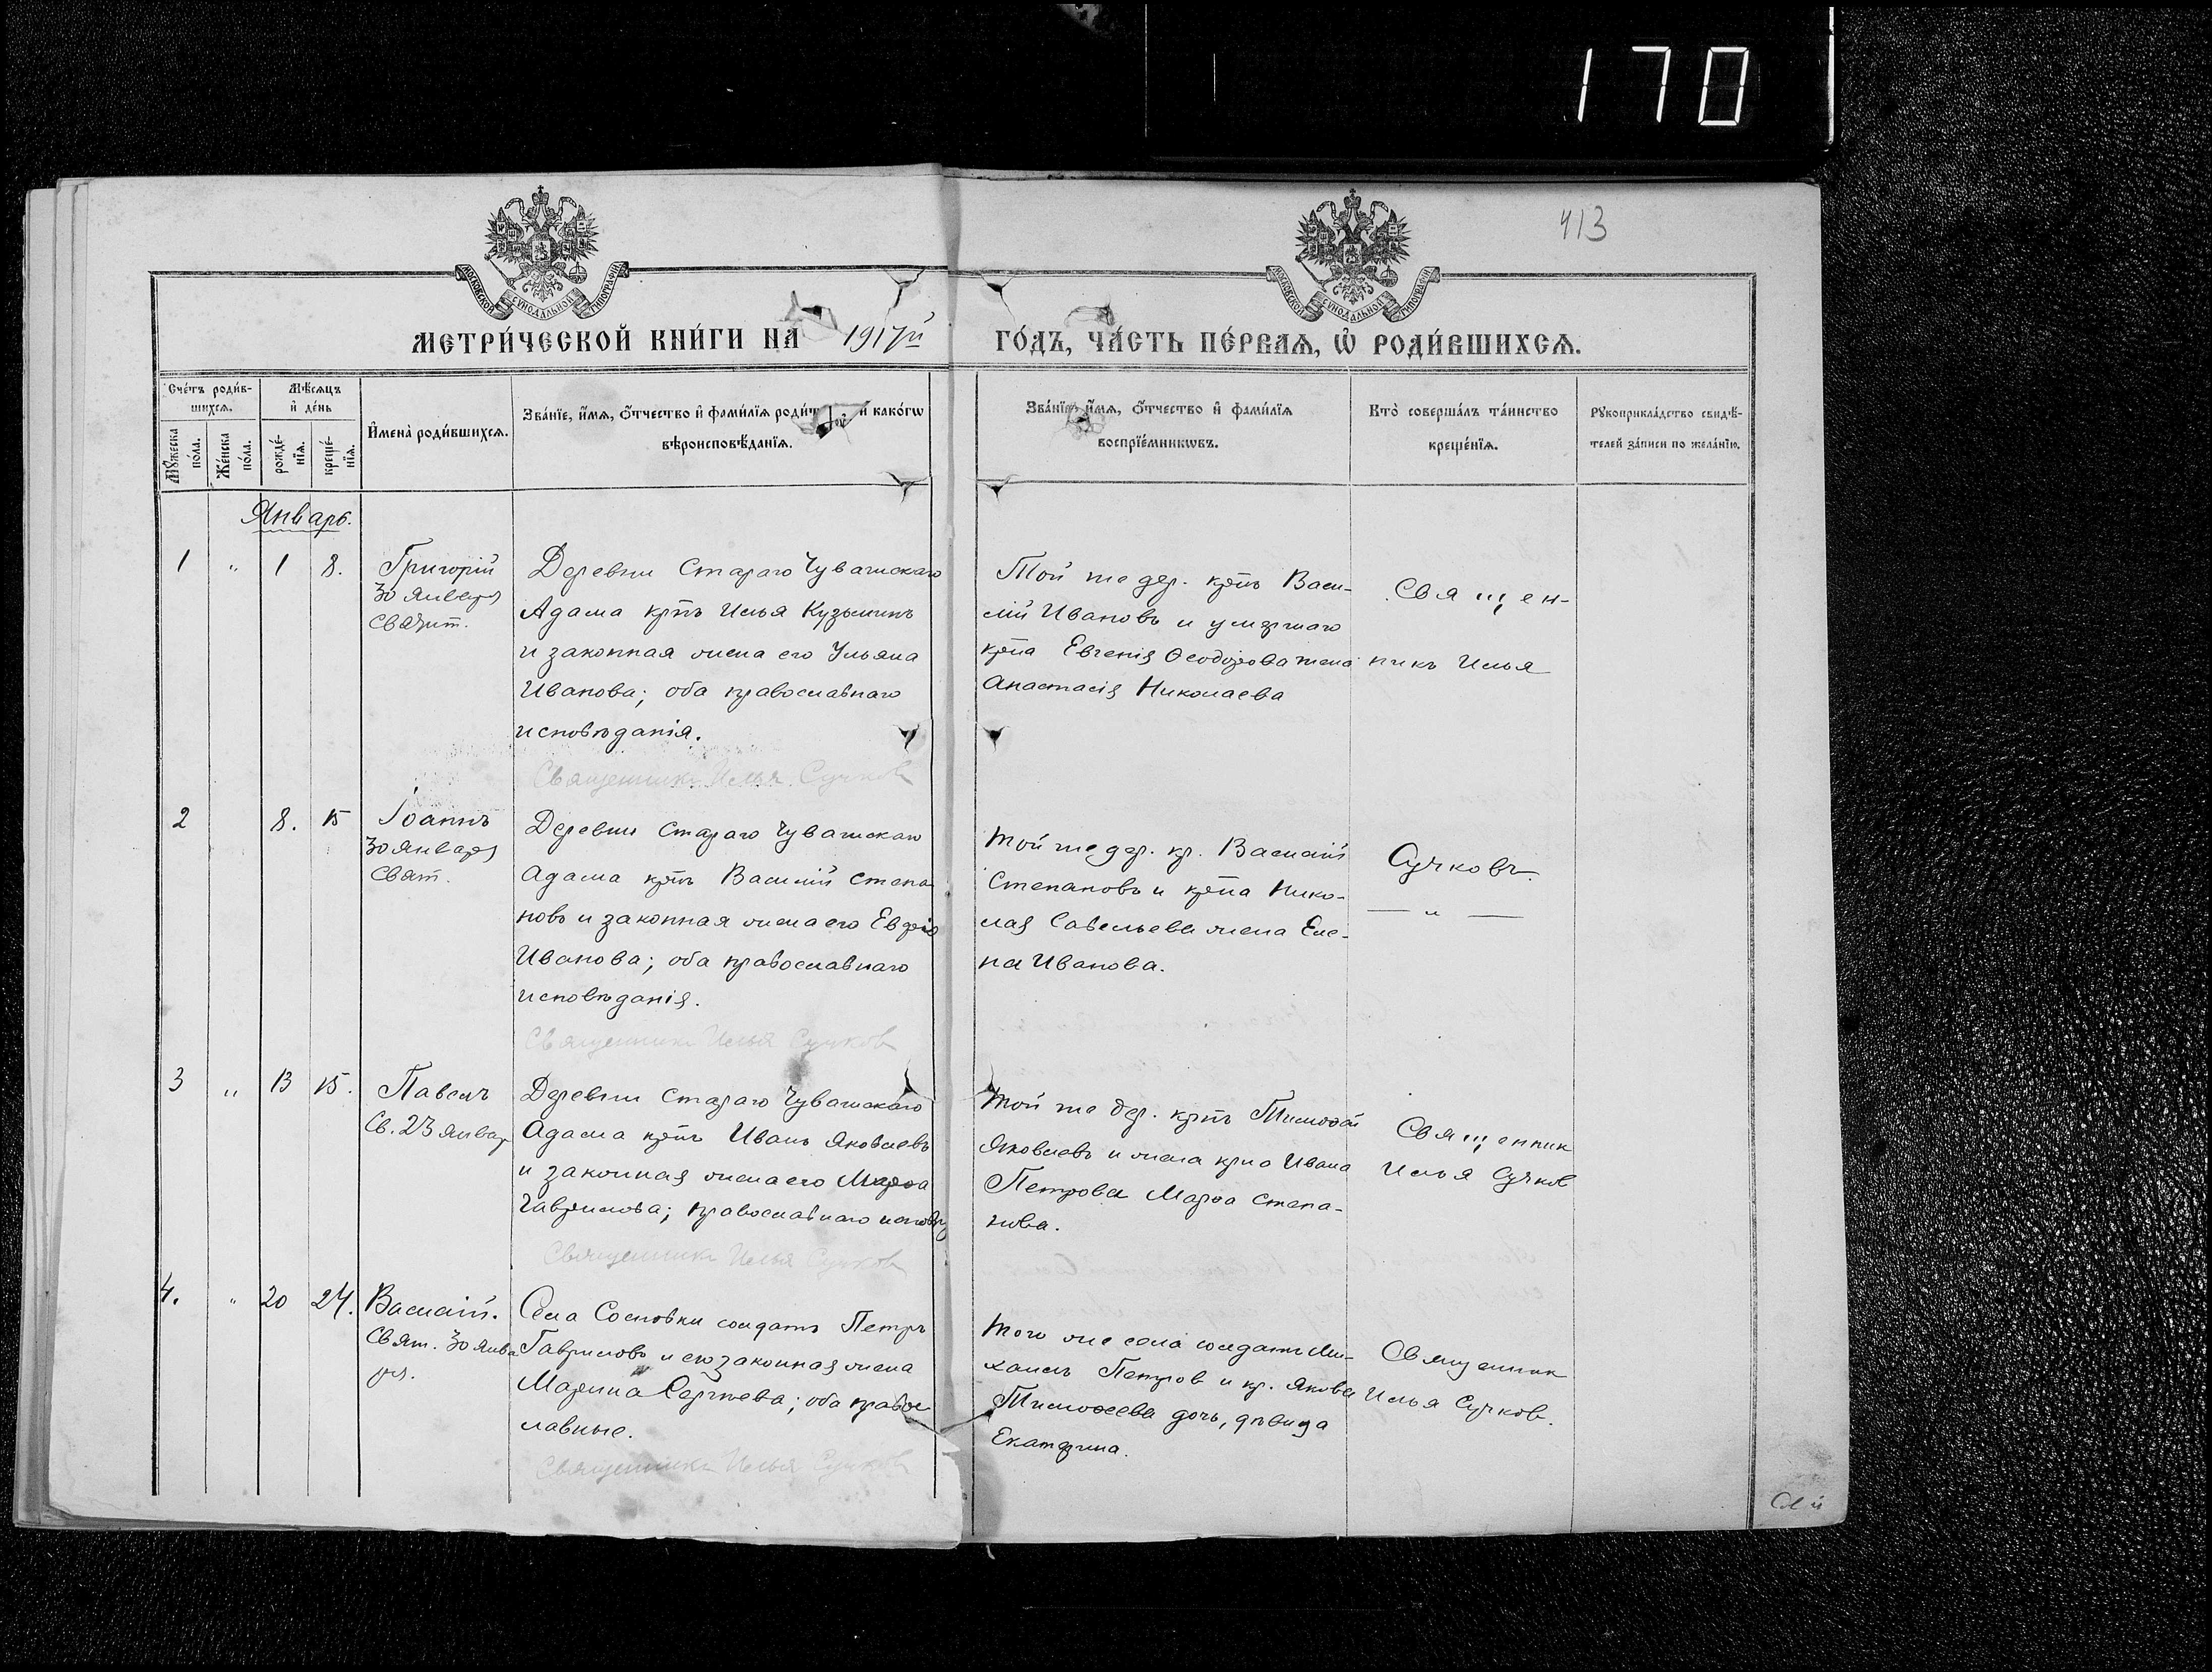 170
413
МОСКОВСКОЙ СУНОДАЛЬНОЙ ТИПОГРАФІИ
МОСКОВСКОЙ СУНОДАЛЬНОЙ ТИПОГРАФІИ
МЕТРИ́ЧЕСКОЙ КНИ́ГИ НА 1917й ГО́ДЪ, ЧА́СТЬ ПЕ́РВАѦ, Ѡ РОДИ́ВШИХСѦ.
Сче́тъ роди́в-
шихсѧ.
Мѣ́сѧцъ
и́ де́нь
Мꙋ́жеска
по́ла.
Же́нска
по́ла.
рожде́-
нїѧ.
креще́-
нїѧ.
И҆мена̀ роди́вшихсѧ.
Зва́нїе, и҆́мѧ, ѻ҆́тчество и҆ фами́лїѧ роди́т и҆ како́гѡ
вѣроисповѣ́данїѧ.
Зва́нїе, и҆́мѧ, ѻ҆́тчество и҆ фами́лїѧ
воспрїе́мникѡвъ.
Кто̀ соверша́лъ та́инство
креще́нїѧ.
Рꙋкоприкла́дство свидѣ́-
телей за́писи по жела́нїю.
Январь.
1 " 1 8.
Григорій
30 января
Святит.
Деревни Стараго Чувашскаго
Адама крнъ Илья Кузьминъ
и законная жена его Ульяна
Иванова; оба православнаго
исповѣданія.
Священникъ Илья Сучков
Той же дер. крнъ Васи-
лій Ивановъ и умершаго
крна Евгенія Ѳеодорова жена
Анастасія Николаева
Священ-
никъ Илья
2 8. 15
Іоаннъ
30 января
Свят.
Деревни Стараго Чувашскаго
Адама крнъ Василій Степа
новъ и законная жена его Евдокія
Иванова; оба православнаго
исповѣданія.
Священникъ Илья Сучков
Той же дер. кр. Василій
Степановъ и крна Нико-
лая Савельева жена Еле-
на Иванова.
Сучковъ.
— " —
3 " 13 15.
Павелъ
Св. 23 январ
Деревни Стараго Чувашскаго
Адама крнъ Иванъ Яковлевъ
и законная жена его Марѳа
Гаврилова; православнаго исповѣд
Священникъ Илья Сучков
Той же дер. крнъ Тимоѳей
Яковлевъ и жена крна Ивана
Петрова Марѳа Степа-
нова.
Священник
Илья Сучков
4. " 20 24.
Василій.
Свят. 30 янва
ря.
Села Сосновки солдатъ Петръ
Гавриловъ и его законная жена
Марина Сергѣева; оба правос
лавные.
Священникъ Илья Сучков
Того же села солдатъ Ми-
хаилъ Петров и кр. Якова
Тимоѳеева дочь, дѣвица
Екатерина.
Священник
Илья Сучков.